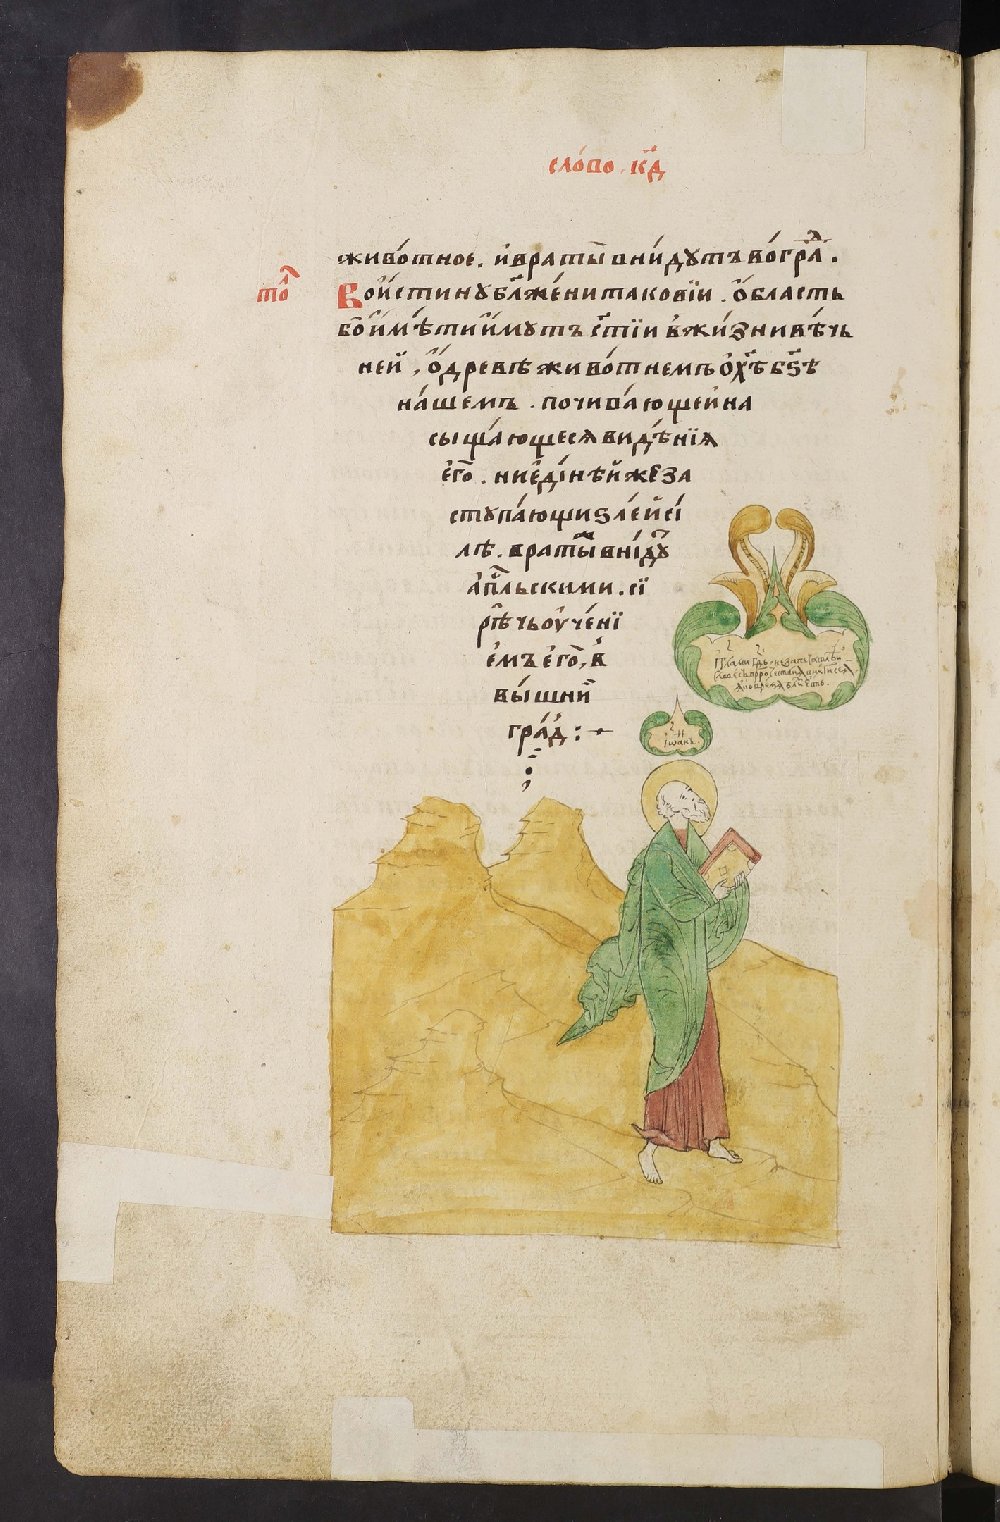 сло́во. к҃д
живо́тное. и҆враты̀ вни́дутъ во́гра́д.
то́л
Вои́стинꙋ бл҃же́ни такові́и. ѡ҆́бласть
бо̀ и҆мѣ́ти и҆́мꙋтъ ст҃і́и в̾жи́зни вѣ́чь
ней, ѡ҆́древѣ живо́тнемъ ѻ҆хр҃ѣ́ бз҃ѣ
на́шемъ. почива́ющей на
сыща́ющеся видѣ́нїѧ
є҆го̀. ни є҆ди́нѣй же за
стꙋпа́ющи ѕле́й си́
лѣ. враты̀ж вни́дꙋ
а҆пⷭ҇льскими. сі́
рѣ́чь ᲂу҆че́нї
емъ є҆го̀, в̾
вы́шнїй
гра́д:
і҆ѡа́нъ.